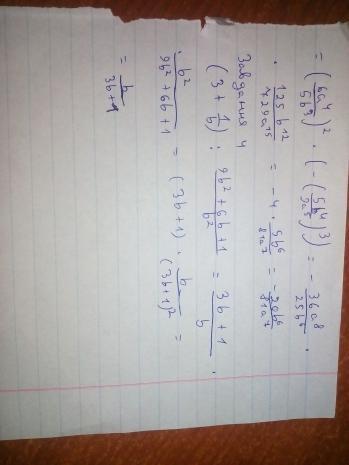 = (6a⁴/5b³)² · (-(5b⁴/9a⁵)³) = - 36a⁸/25b⁶ ·
· 125b¹²/729a¹⁵ = -4 · 5b⁶/81a⁷ = - 20b⁶/81a⁷
Завдання 4
(3 + 1/b) : 9b² + 6b + 1/b² = 3b + 1/b ·
· b²/9b² + 6b + 1 = (3b + 1) · b/(3b + 1)² =
= b/3b + 1